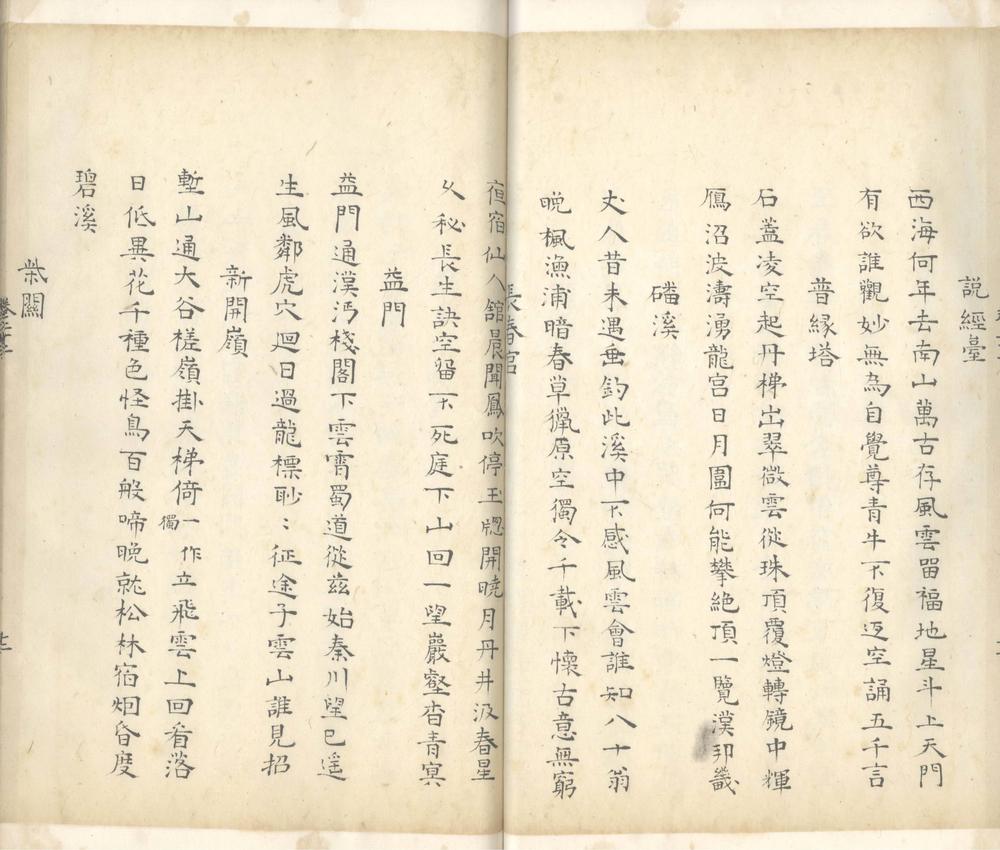 説經臺
西海何年去南山萬古存風雲留福地星斗上天門
有欲誰觀妙無為自覺尊青牛不復返空誦五千言
普緣塔
石蓋凌空起丹梯出翠微雲從珠頂覆燈轉鏡中輝
鴈沼波濤湧龍宮日月圍何能攀絕頂一覽漢邦畿
磻溪
丈人昔未遇垂釣此溪中不感風雲會誰知八十翁
晚楓漁浦暗春草獵原空獨令千載下懷古意無窮
長春宮
夜宿仙人舘晨聞鳳吹停玉牕開曉月丹井汲春星
久秘長生訣空留不死庭下山回一望巖壑杳青冥
益門
益門通漢沔棧閣下雲霄蜀道從茲始秦川望已遥
生風鄰虎穴廻日過龍標眇：征途子雲山誰見招
新開嶺
塹山通大谷槎嶺掛天梯倚一作獨立飛雲上回看落
日低異花千種色怪鳥百般啼晚就松林宿烟昏度
碧溪
柴關